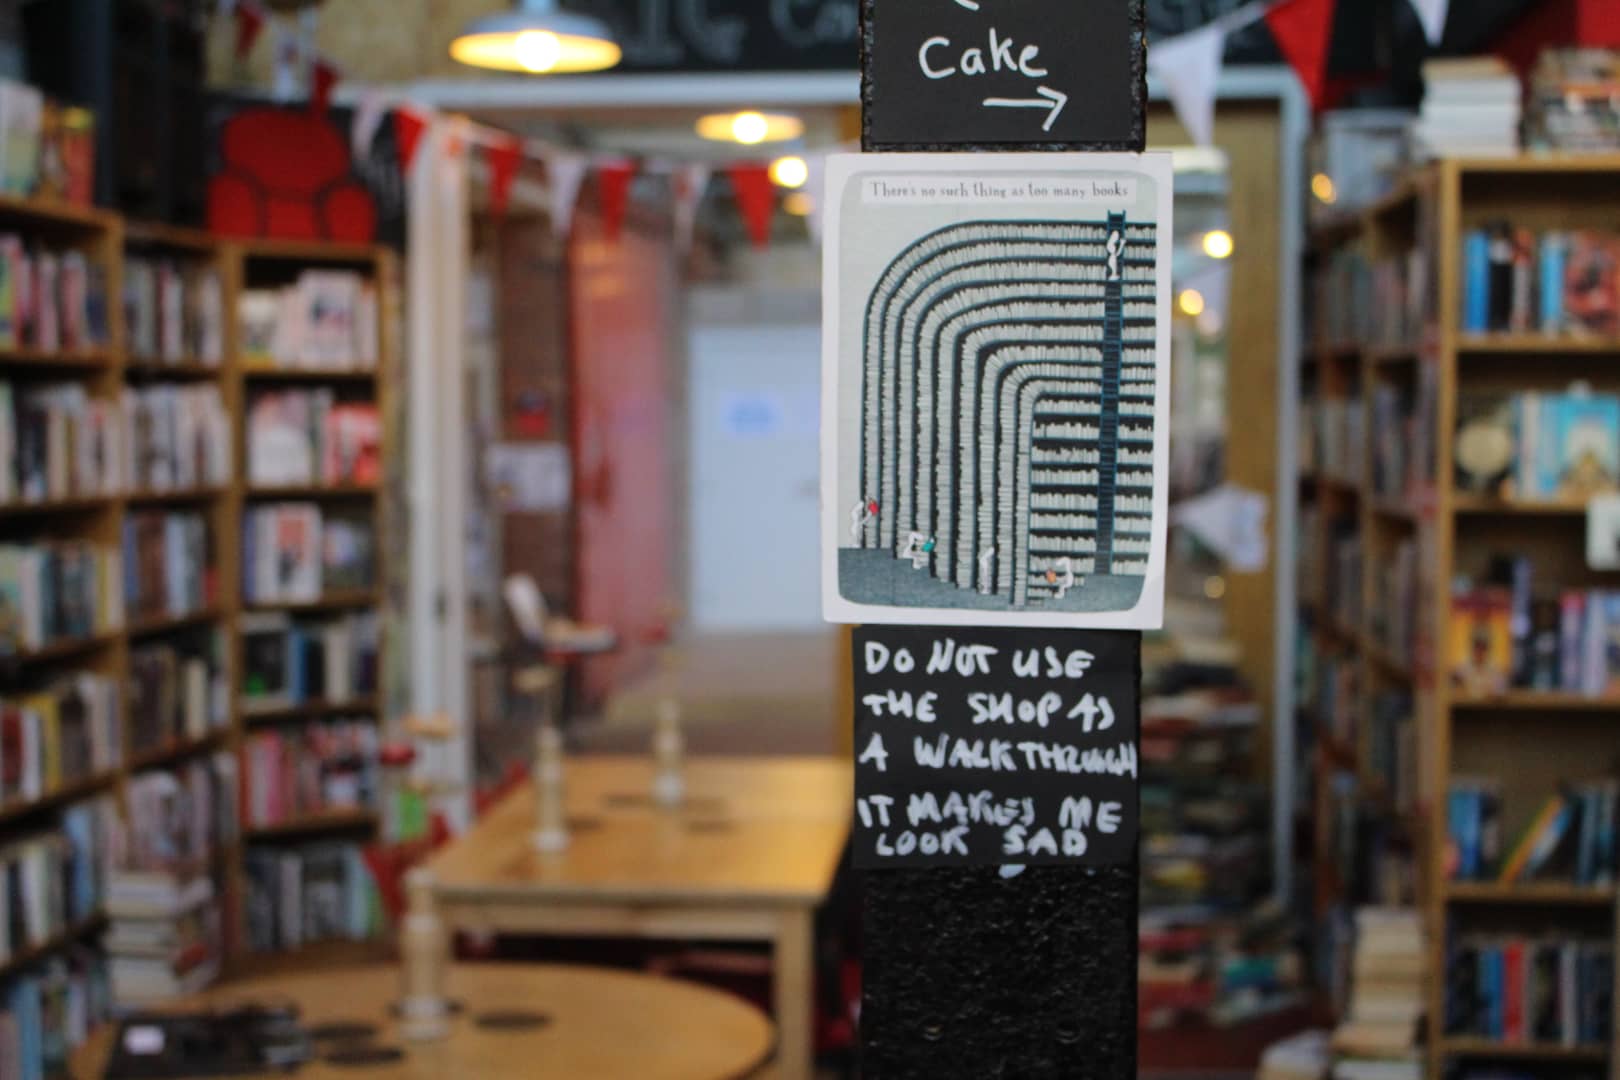 Cake
→
There's no such thing as too many books
DO NOT USE
THE SHOP AS
A WALKTHROUGH
IT MAKES ME
LOOK SAD